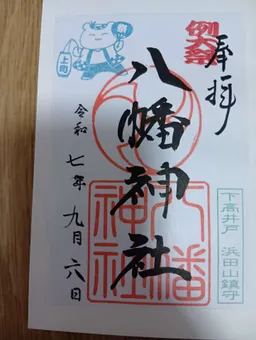 奉拝
例大祭
八幡神社
八幡神社
下高井戸 浜田山鎮守
令和七年九月六日
祭り